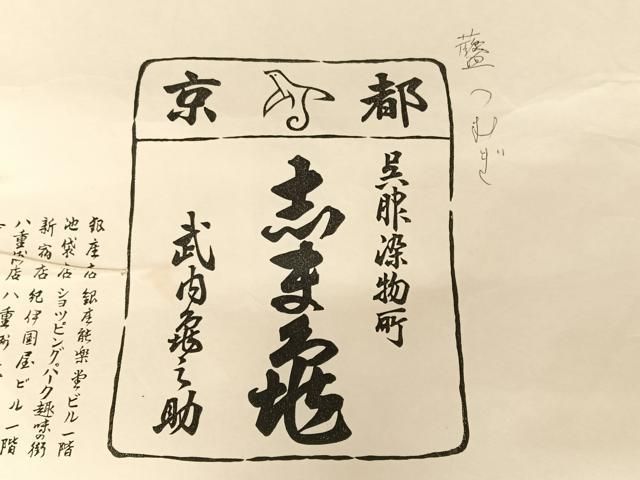 藍つむぎ
京都
呉服染物所
志ま亀
武内亀之助
銀座店 銀座能楽堂ビル一階
池袋店 ショツピングパーク趣味の街
新宿店 紀伊国屋ビル一階
八重洲店 八重洲